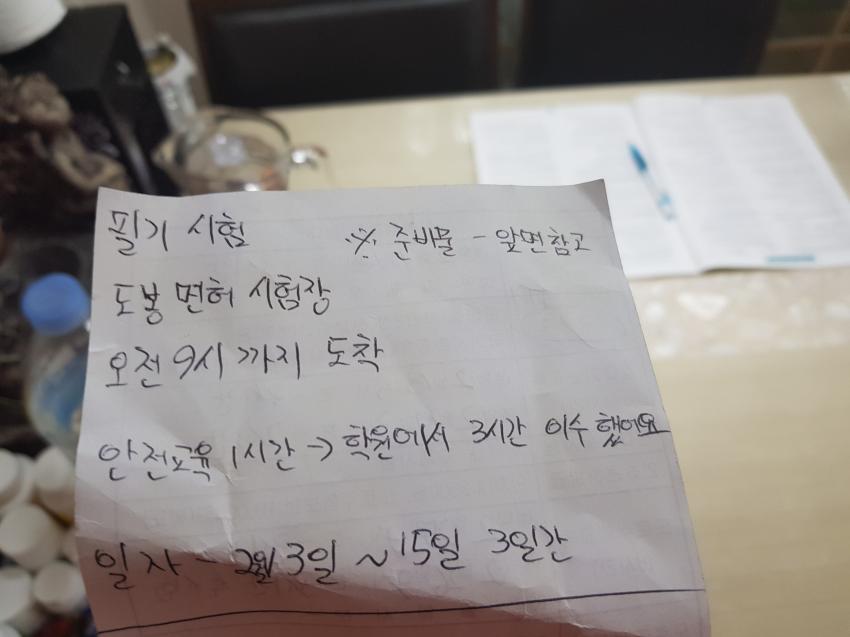 필기 시험 ※ 준비물 - 앞면참고
도봉 면허 시험장
오전 9시 까지 도착
안전교육 1시간 → 학원에서 3시간 이수 했어요
일자 - 2월 3일 ~ 15일 3일간